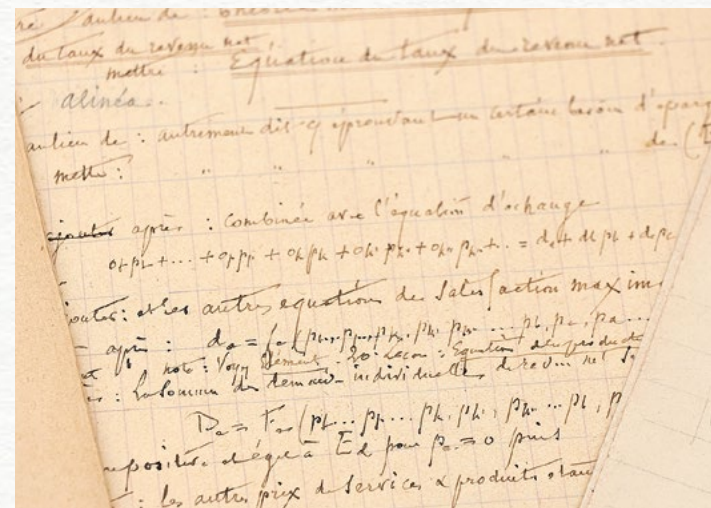 au lieu de :
du taux du revenu net
mettre : Equation du taux du revenu net.
alinéa..
au lieu de : autrement dit q éprouvant un certain besoin d'éparg
mettre : " " " " " de (
ajouter après : combinée avec l'équation d'échange
otpt + ... + oppp + okpk + ok'pk' + ok''pk'' + .. = da + dbpb + dcpc
ajouter : et les autres équations de satisfaction maxim
après : de = fe(pt...pp...pk, pk', pk''... pb, pc, pd ...
note : Voyez Elément. 20e Leçon : Equation
: La somme des demandes individuelles de revenu net
De = Fe(pt... pp... pk, pk', pk''... pb, p
positive et égale à Ed pour pe = 0 puis
: les autres prix de services & produits étan